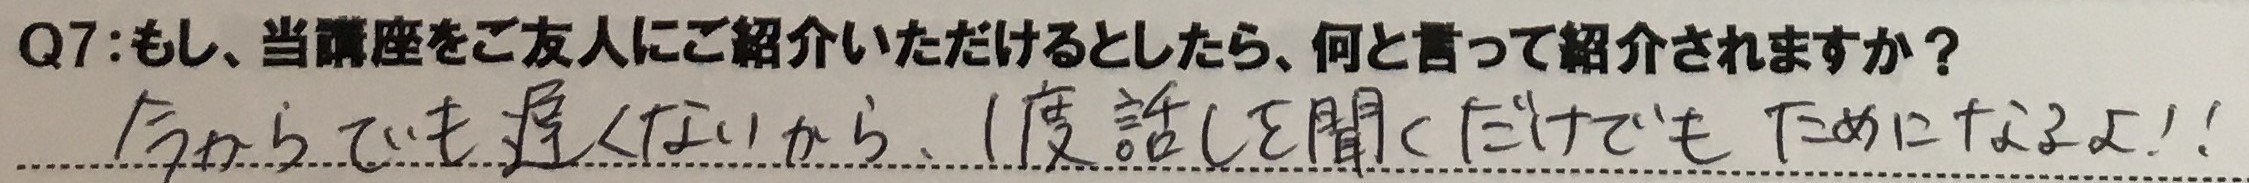 Q7:もし、当講座をご友人にご紹介いただけるとしたら、何と言って紹介されますか?
今からでも遅くないから、1度話しを聞くだけでもためになるよ!!